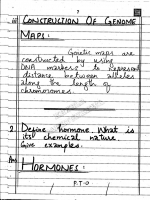 iii) CONSTRUCTION OF GENOME
MAPS:
Genetic maps are
constructed by using
DNA markers to represent
distance between alleles
along the length of
chromosomes.
2 Define hormone. What is
its chemical nature.
Give examples.
Ans HORMONES:
P.T.O